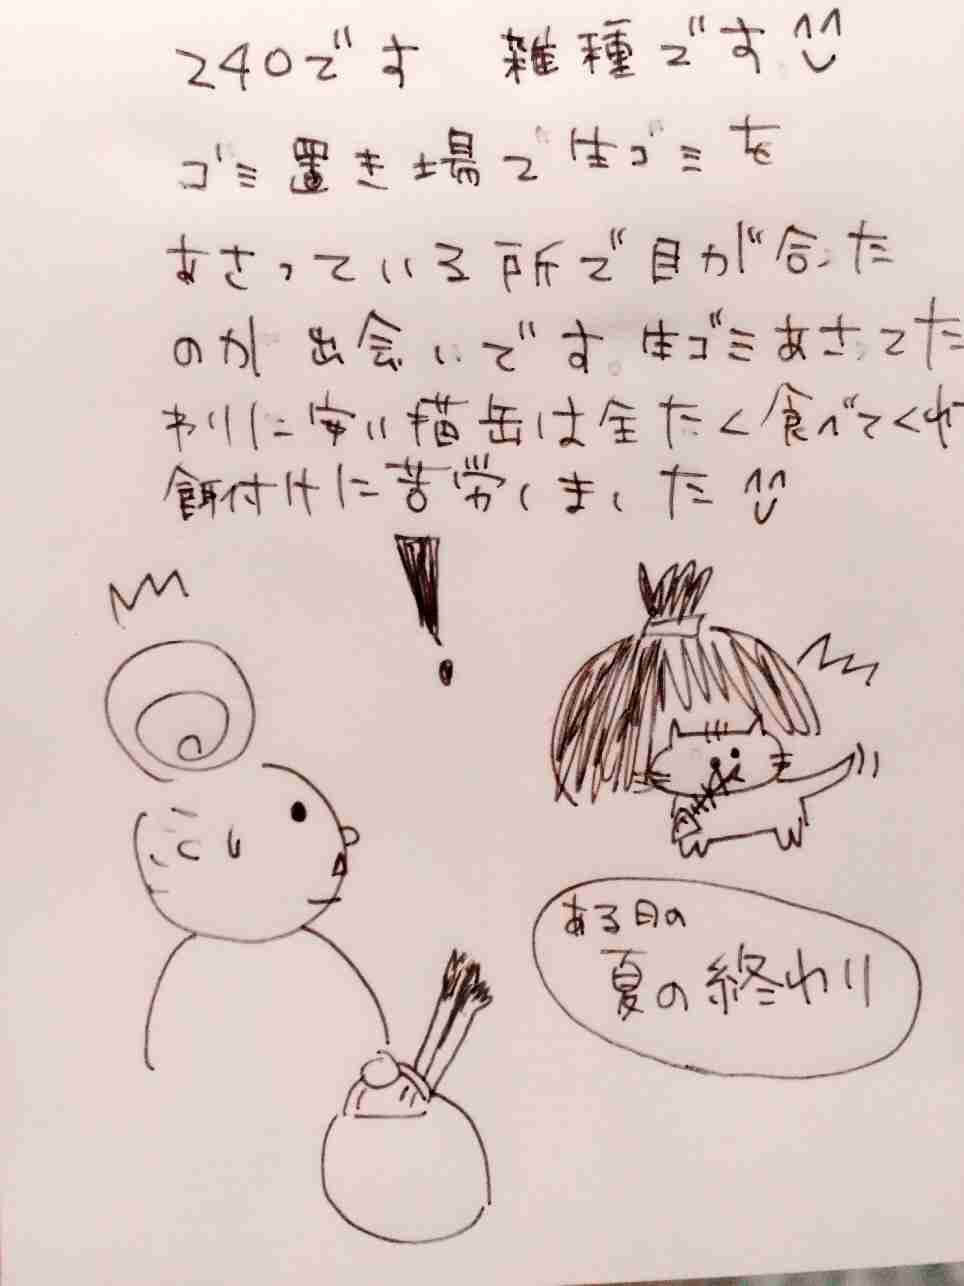 240です 雑種です^^
ゴミ置き場で生ゴミを
あさっている所で目が合った
のが出会いです。生ゴミあさってた
わりに安い猫缶は全たく食べてくれ
餌付けに苦労しました^^
!
ある日の
夏の終わり